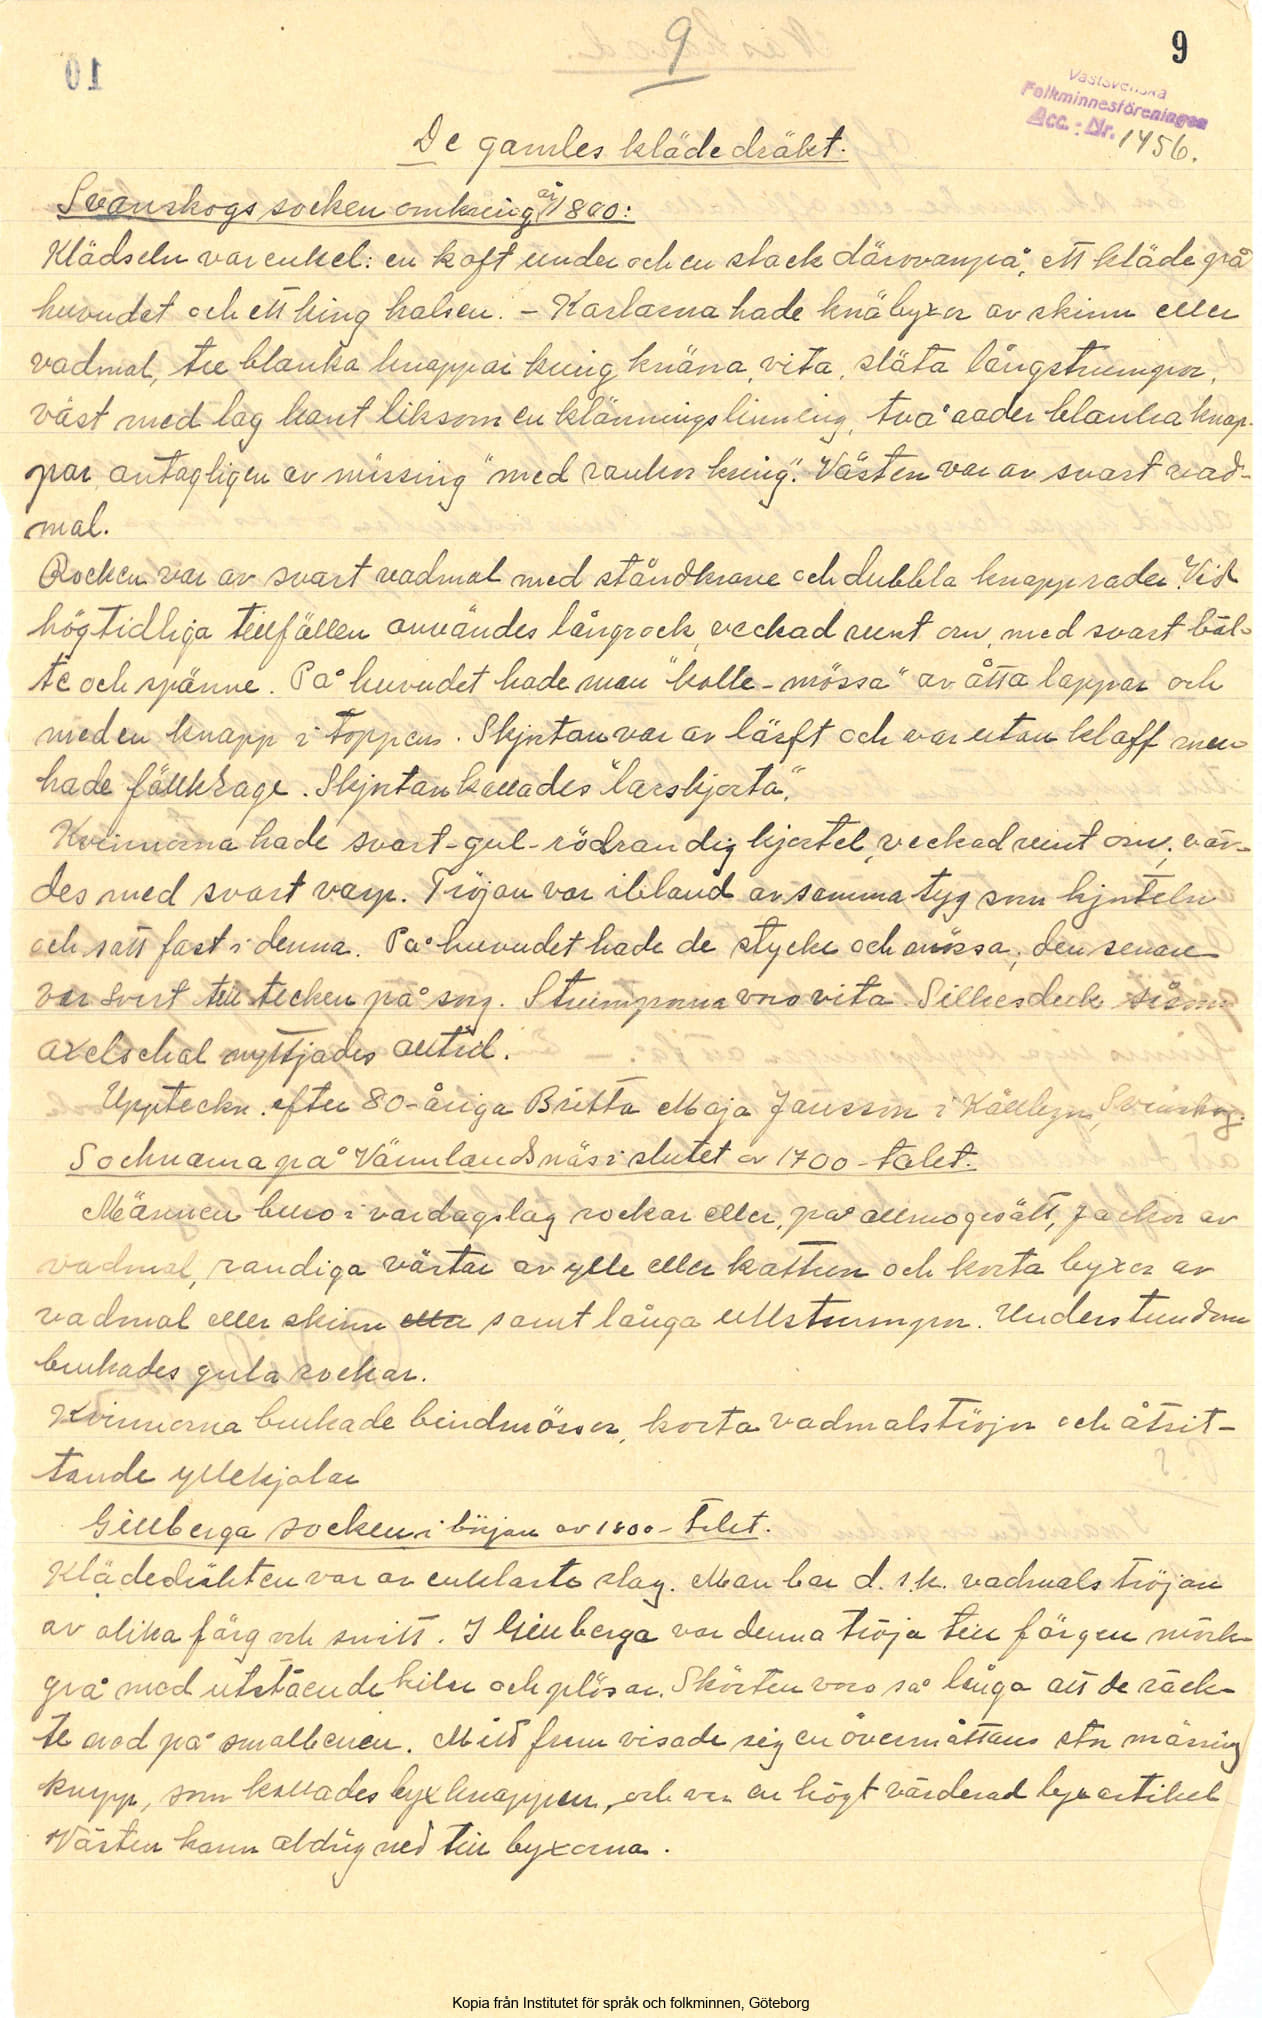 9
9
10
Västsvenska
Folkminnesföreningen
Acc. - Nr. 1456.
De gamles klädedräkt.
Svanskogs socken omkring år 1800:
Klädseln var enkel: en koft under och en stack därovanpå, ett kläde på
huvudet och ett kring halsen. - Karlarna hade knäbyxor av skinn eller
vadmal, tre blanka knappar kring knäna, vita, släta långstrumpor,
väst med låg kant liksom en klänningslinning, två rader blanka knap-
par, antagligen av mässing "med rankor kring". Västen var av svart vad-
mal.
Rocken var av svart vadmal med ståndkrave och dubbla knapprader. Vid
högtidliga tillfällen användes långrock, veckad runt om, med svart bäl-
te och spänne. På huvudet hade man "kolle-mössa" av åtta lappar och
med en knapp i toppen. Skjortan var av lärft och var utan klaff men
hade fällkrage. Skjortan kallades "larskjorta".
Kvinnorna hade svart-gul-rödrandig kjortel, veckad runt om, väv-
des med svart varp. Tröjan var ibland av samma tyg som kjorteln
och satt fast i denna. På huvudet hade de stycke och mössa; den senare
var svart till tecken på sorg. Strumporna voro vita. Silkesduk såsom
axelschal nyttjades alltid.
Uppteckn. efter 80-åriga Britta Maja Jansson i Svanskog.
Socknarna på Värmlandsnäs i slutet av 1700-talet.
Männen buro i vardagslag rockar eller, på allmogesätt, jackor av
vadmal, randiga västar av ylle eller kattun och korta byxor av
vadmal eller skinn samt långa ullstrumpor. Understundom
brukades gula rockar.
Kvinnorna brukade bindmössor, korta vadmalströjor och åtsit-
tande yllekjolar
Gillberga socken i början av 1800-talet.
Klädedräkten var av enklaste slag. Man bar d. s.k. vadmalströjan
av olika färg och snitt. I Gillberga var denna tröja till färgen mörk-
grå med utstående kilar och plösar. Skörten voro så långa att de räck-
te ned på smalbenen. Mitt fram visade sig en övermåttans stor mässing
knapp, som kallades byxknappen, och var en högt värderad lyxartikel
Västen hann aldrig ned till byxorna.
Kopia från Institutet för språk och folkminnen, Göteborg